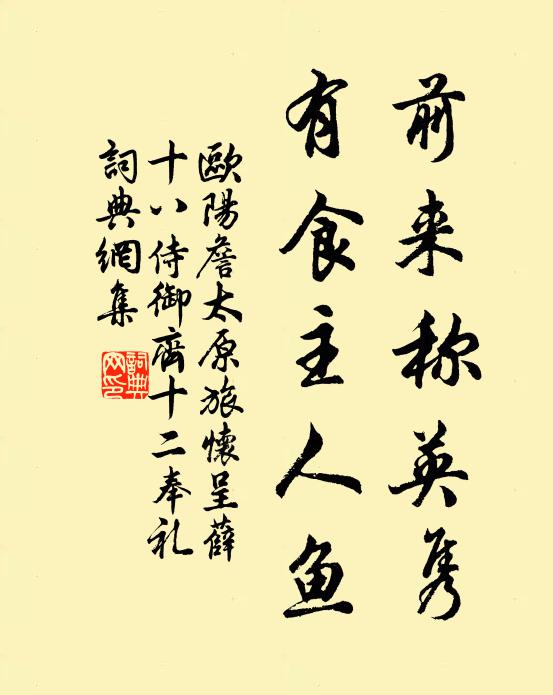 前来称英隽
有食主人鱼
歐陽詹太原旅懷呈薛
十八侍御齊十二奉礼
詞典網集
詞典
网印